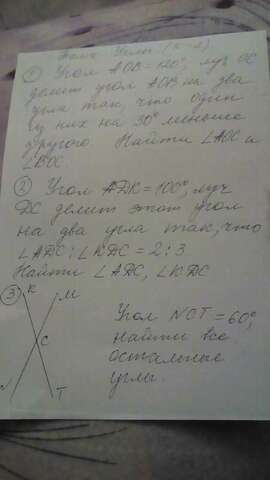 Тема: Углы
① Угол AOB = 120°, луч OC
делит угол AOB на два
угла так, что один
из них на 30° меньше
другого. Найти ∠AOC и
∠BOC.
② Угол ADK = 100°, луч
DC делит этот угол
на два угла так, что
∠ADC : ∠KDC = 2 : 3
Найти ∠ADC, ∠KDC
③ K M
Угол NCT = 60°,
найти все
C остальные
углы.
N T